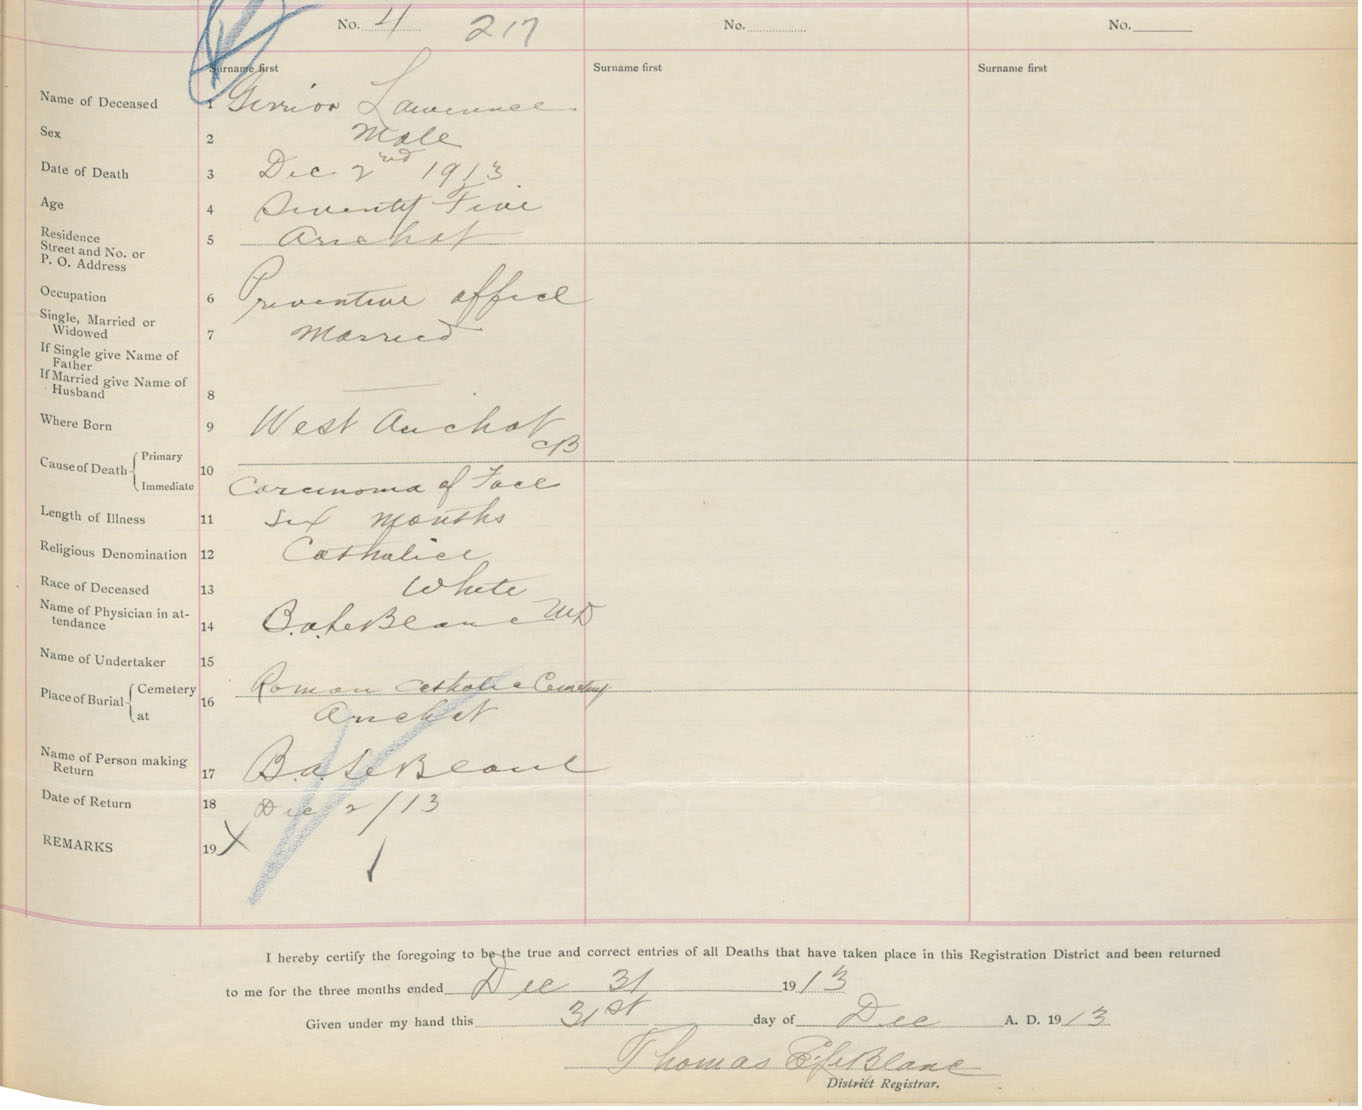 No. 4 217 No. No.
Surname first Surname first Surname first
Name of Deceased 1 Gerrior Lawrence
Sex 2 Male
Date of Death 3 Dec 2nd 1913
Age 4 Seventy Five
Residence
Street and No. or
P. O. Address 5 Arichat
Occupation 6 Preventive office
Single, Married or
Widowed 7 Married
If Single give Name of
Father
If Married give Name of
Husband 8
Where Born 9 West Arichat
CB
Cause of Death Primary
Immediate 10 Carcinoma of Face
Length of Illness 11 Six months
Religious Denomination 12 Catholic
Race of Deceased 13 White
Name of Physician in at-
tendance 14 B.A. LeBlanc MD
Name of Undertaker 15
Place of Burial Cemetery 16 Roman Catholic Cemetery
at Arichat
Name of Person making
Return 17 B.A. LeBlanc
Date of Return 18 Dec 2/13
REMARKS 19 X
I hereby certify the foregoing to be the true and correct entries of all Deaths that have taken place in this Registration District and been returned
to me for the three months ended Dec 31 1913
Given under my hand this 31st day of Dec A. D. 1913
Thomas E LeBlanc
District Registrar.